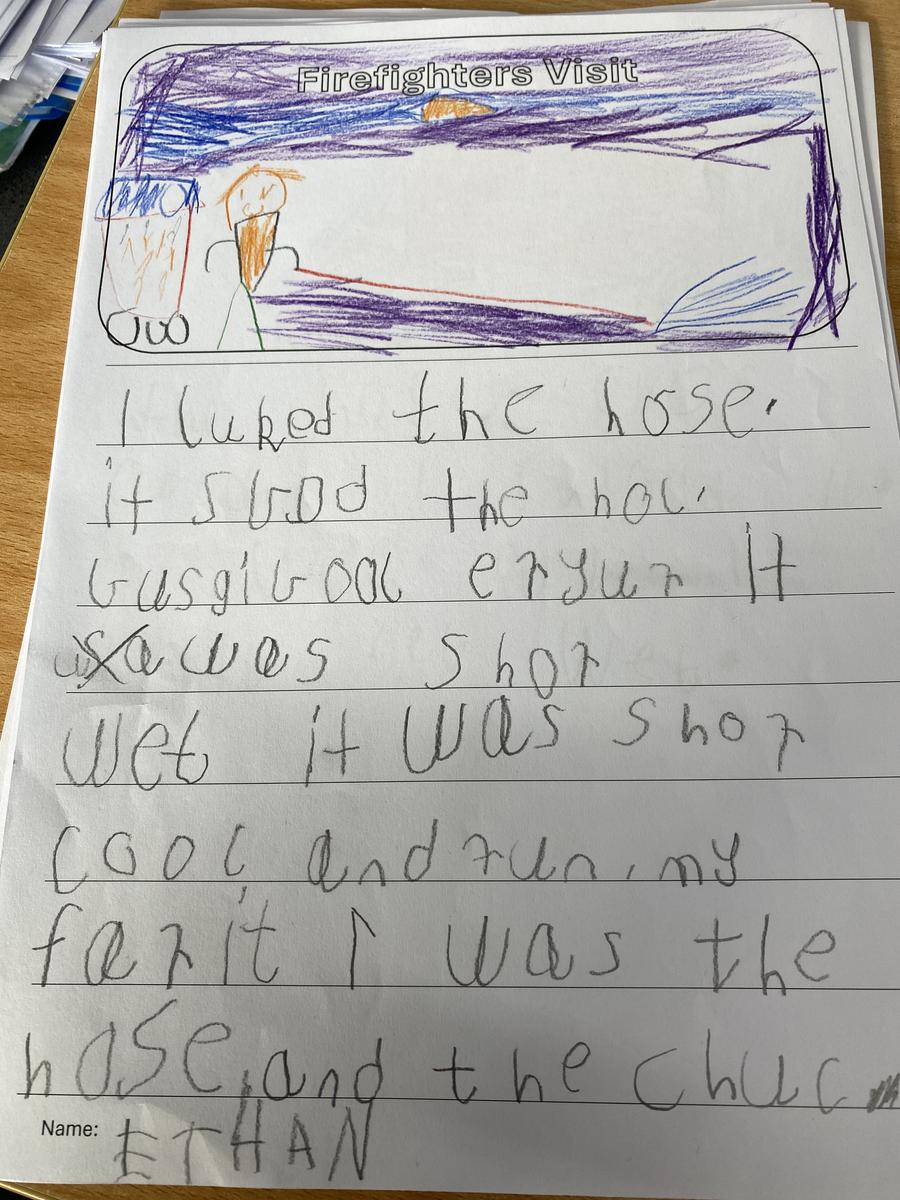 Firefighters Visit
I luked the hose.
it the hol.
eryur It
was shor
wet it was shor
cool and run. my
farit I was the
hose, and the chuc
Name: ETHAN